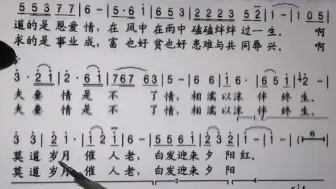 5 5 3 7 7 | 6 - | 5 5 3 5 | 2 3 2 2 2 3 | 5 5 2 | 1 - | 1 0 5
道的是恩爱情，在风中在雨中磕磕绊绊过一生。 啊
求的是事业成，富也好贫也好患难与共同尝兴。 啊
3 · 2 1 | 2 1 · | 7 6 7 6 3 | 6 - | 5 5 6 1 | 6 5 3 | 2 -
夫妻情是不了情，相濡以沫伴终生。
夫妻情是不了情，相濡以沫伴终生。
3 3 | 2 1 | 6 - | 5 5 6 1 | 6 5 | 1 - | 1
莫道岁月催人老，白发迎来夕阳红。
莫道岁月催人老，白发迎来夕阳